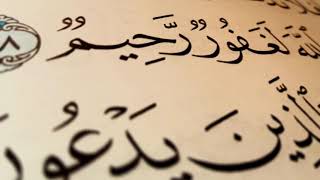 اللَّهَ لَغَفُورٌ رَّحِيمٌ ١٨
وَالَّذِينَ يَدْعُونَ